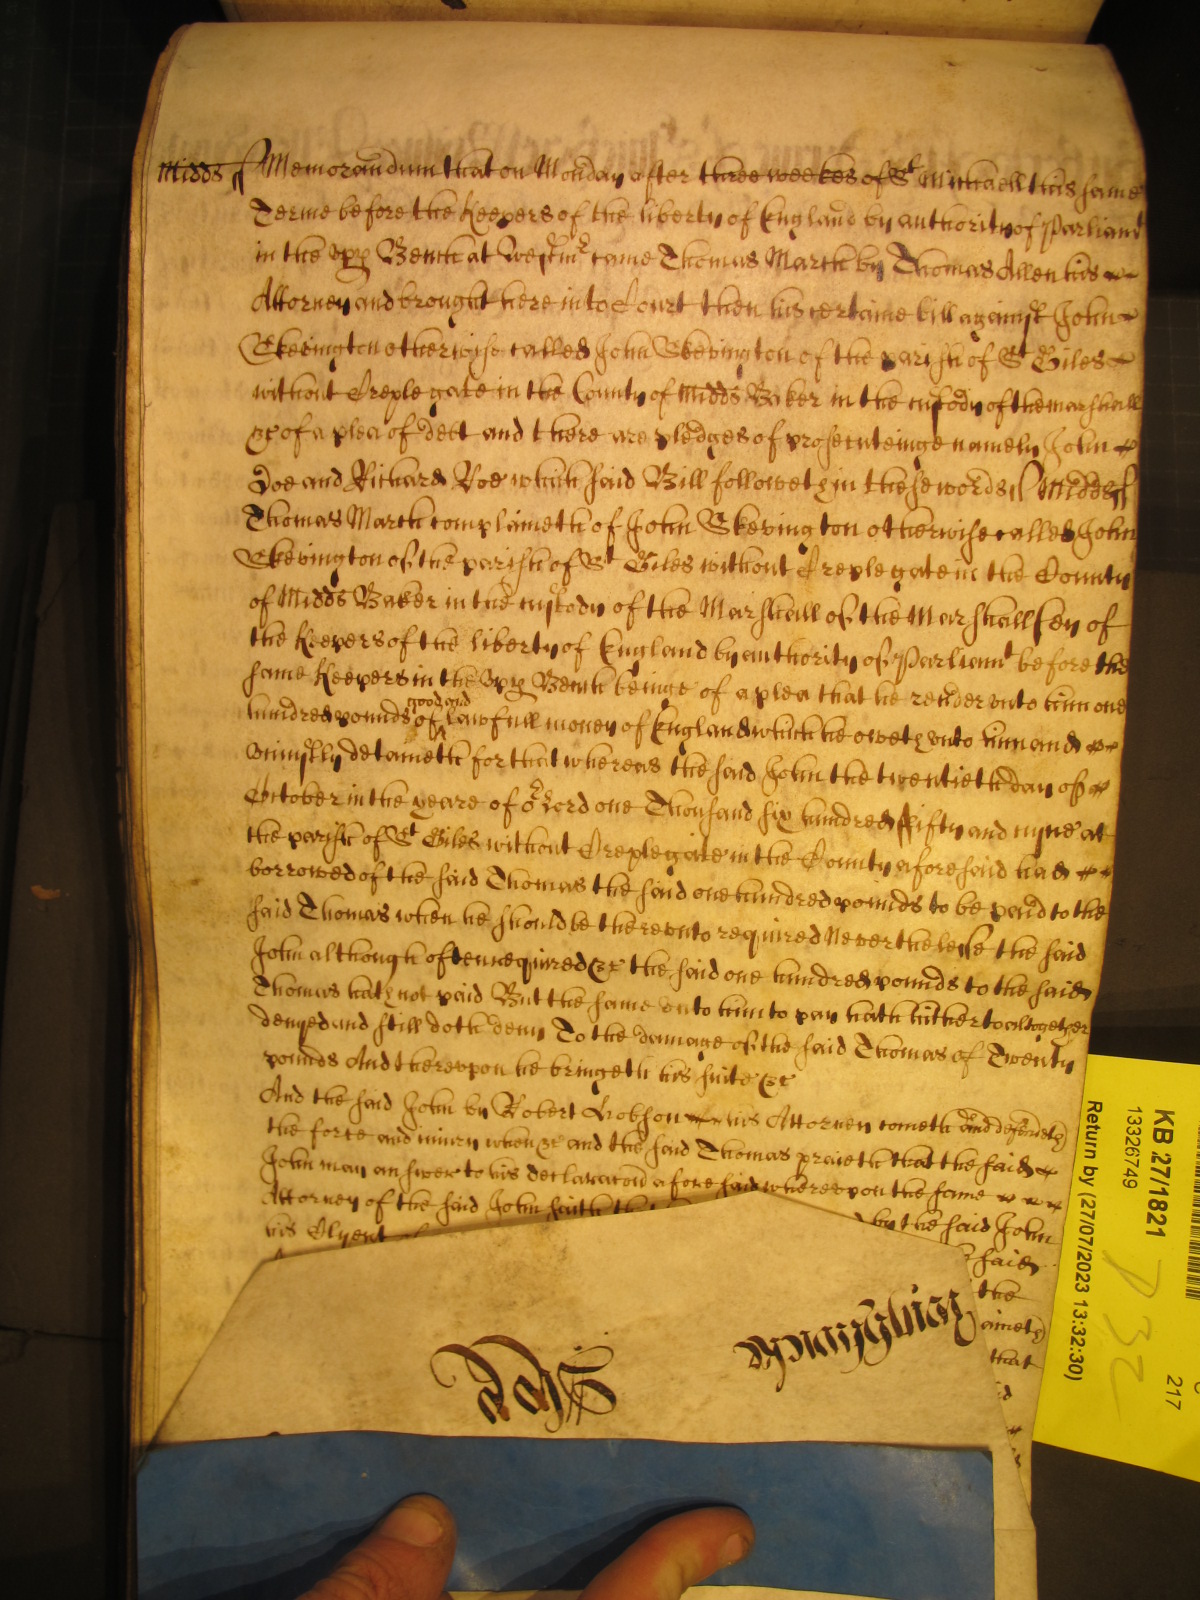 Midds ss Memorandum that on Monday after three weekes of St Michaell this same
Terme before the Keepers of the liberty of England by authority of Parliamt
in the vpp Bench at Westmr came Thomas March by Thomas Allen his
Attorney and brought here into Court then his certaine bill against John
Skevington otherwise called John Skevington of the parish of St Giles
without Creplegate in the County of Midds Baker in the custody of the marshall
&c of a plea of debt and there are pledges of prosecuteinge namely John
Doe and Richard Roe which said Bill followeth in these words ss Midds ss
Thomas March complaineth of John Skevington otherwise called John
Skevington of the parish of St Giles without Creplegate in the County
of Midds Baker in the custody of the Marshall of the Marshallsey of
the Keepers of the liberty of England by authority of Parliamt before the
same Keepers in the vpp Bench beinge of a plea that he render vnto him one
hundred pounds of good and lawfull money of England which he oweth vnto him and
vniustly detaineth for that whereas the said John the twentieth day of
October in the yeare of or Lord one Thousand six hundred fifty and nyne at
the parish of St Giles without Creplegate in the County aforesaid had
borrowed of the said Thomas the said one hundred pounds to be paid to the
said Thomas when he should be therevnto required Neverthelesse the said
John although often required &c the said one hundred pounds to the said
Thomas hath not paid But the same vnto him to pay hath hitherto altogether
denyed and still doth deny To the damage of the said Thomas of Twenty
pounds And therevpon he bringeth his suite &c
And the said John by Robert Hobson his Attorney cometh and defendeth
the force and iniury when &c and the said Thomas praieth that the said
John may answer to his declaracon aforesaid wherevpon the same
Attorney of the said John saith that
by the said John
his Clyent
said
the
aineth
that
KB 27/1821
13326749
Return by (27/07/2023 13:32:30)
217